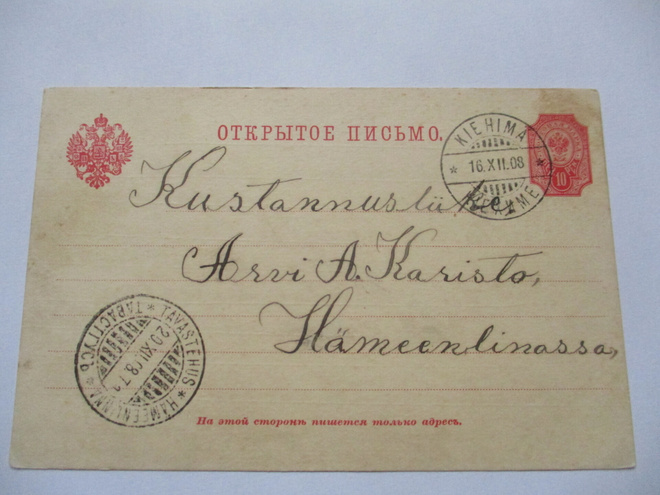 ОТКРЫТОЕ ПИСЬМО.
KIEHIMA
16.XII.08
10
Kustannusliike
Arvi A. Karisto,
Hämeenlinnassa,
TAVASTEHUS * HÄMEENLINNA * ТАВАСТГУСЪ *
20.XII.08.
На этой сторонѣ пишется только адресъ.